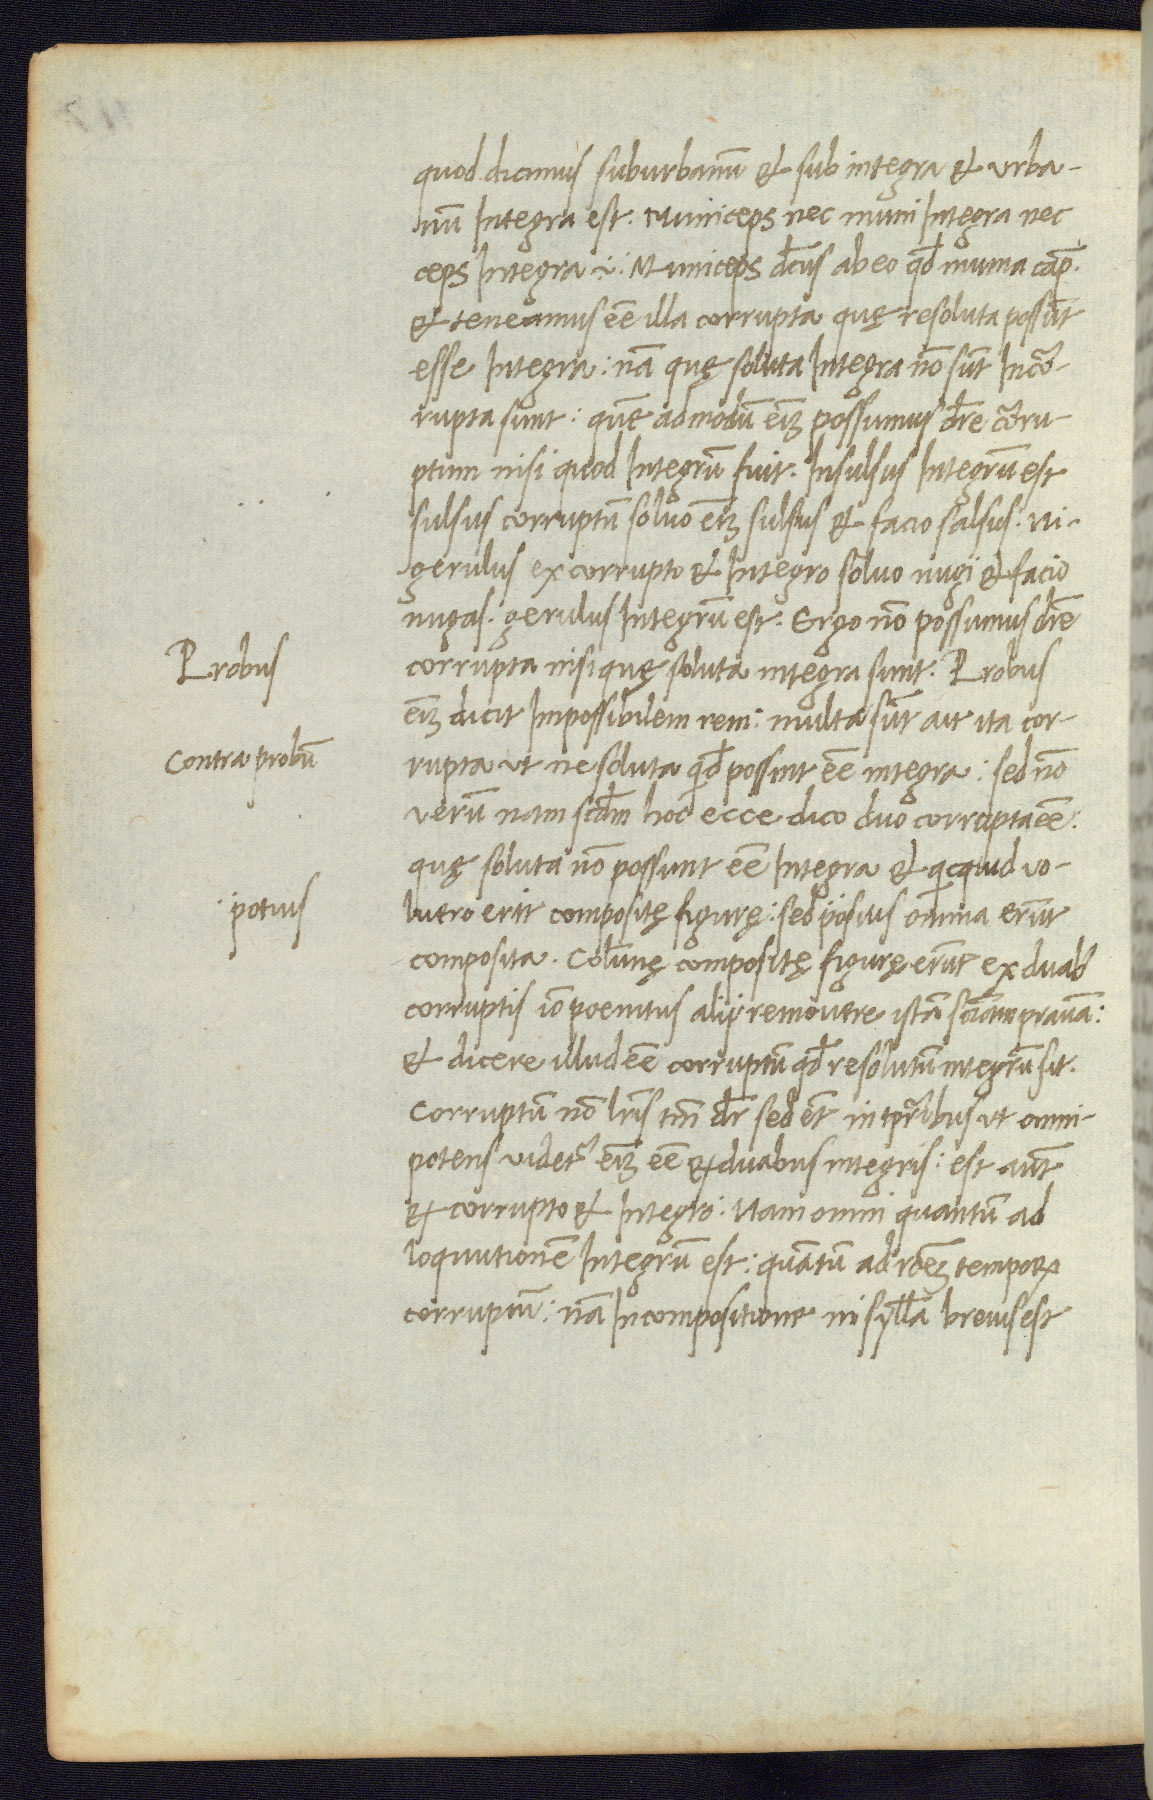 quod dicimus suburbanũ & sub integra & urba-
nũ Integra est. Municeps nec muni Integra nec
ceps Integra .i. Municeps dc̃us ab eo qd̃ munia cap̃.
& teneamus eẽ illa corrupta quę resoluta possũt
esse Integra: nã quę soluta Integra nõ sũt Incor-
rupta sunt: quẽ admodũ eiȝ possumus dr̃e corru-
ptum nisi quod Integrũ fuit. Insulsus Integrũ est
sulsus corruptũ soluo eĩȝ sulsus & facio salsus. Ni-
gerulus ex corrupto & Integro soluo nugi & facio
nugas. gerulus Integrũ est. Ergo nõ possumus dr̃e
Probus
corrupta nisi quę soluta integra sunt. Probus
eĩȝ dicit Impossibilem rem: multa sũt ait ita cor-
Contra probũ
rupta ut ne soluta qd̃ possint eẽ integra: sed nõ
verũ nam scd̃m hoc ecce dico duo corrupta eẽ:
quę soluta nõ possunt eẽ Integra & qicquid vo-
potius
luero erit compositę figurę: sed positus omnia erũt
composita. Colũnę compositę figurę erũt ex duab
corruptis iõ poenitus alij remouere istã sniam prauã:
& dicere illud eẽ corruptũ qd̃ resolutũ integrũ sit.
Corruptũ nõ lr̃is tm̃ dr̃ sed et̃ in tpr̃ibus ut omni-
potens videt᷑ eĩȝ eẽ ex duabus integris: est aũt
ex corrupto & Integro: Nam omni quantũ ad
loquutionẽ Integrũ est: quãtũ ad rõẽȝ tempoꝝ
corruptũ: nã In compositione ni sylla breuis est